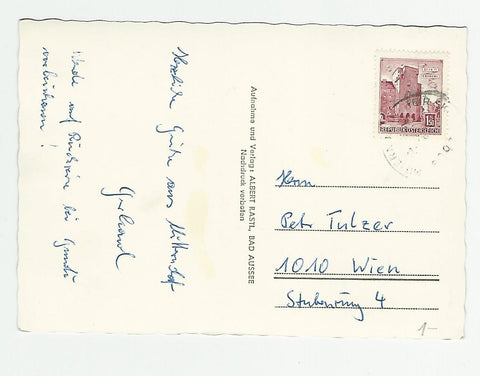 Herzliche Grüße aus Mitterndorf
Gerhard
Werde auf Rückreise bei
vorbeischauen!
Aufnahme und Verlag: ALBERT RASTL, BAD AUSSEE
Nachdruck verboten
REPUBLIK ÖSTERREICH
Herrn
Peter Tulzer
1010 Wien
Stubenring 4
1-